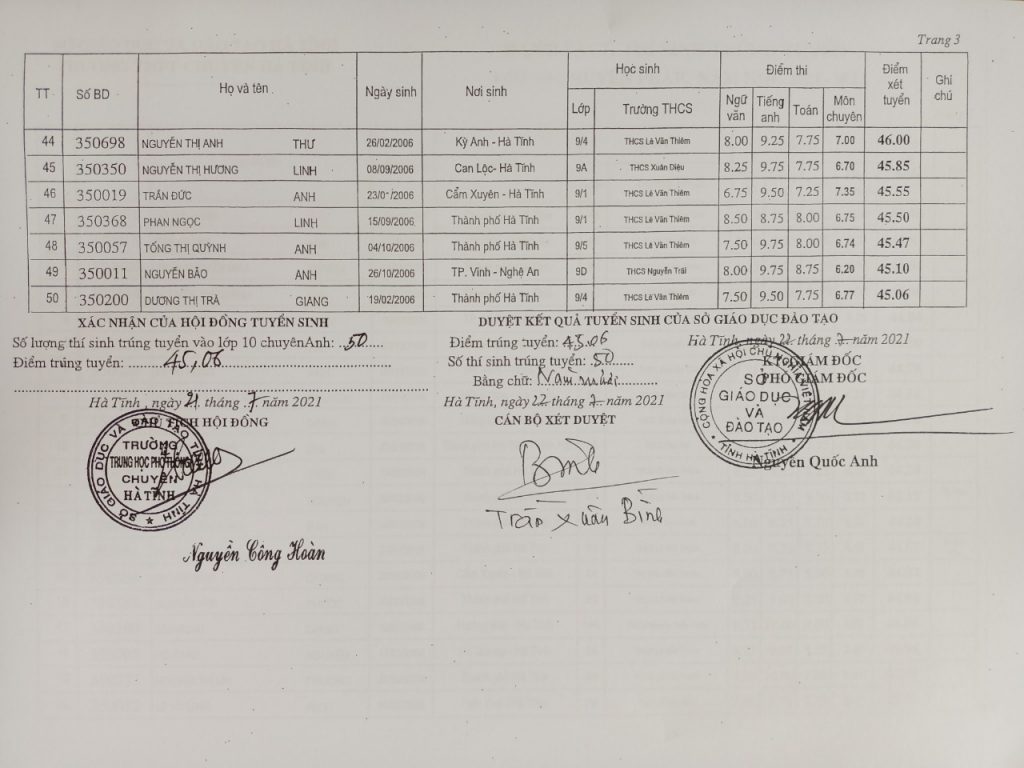 Trang 3
TT Số BD Họ và tên Ngày sinh Nơi sinh Học sinh Điểm thi Điểm xét tuyển Ghi chú
Lớp Trường THCS Ngữ văn Tiếng anh Toán Môn chuyên
44 350698 NGUYỄN THỊ ANH THƯ 26/02/2006 Kỳ Anh - Hà Tĩnh 9/4 THCS Lê Văn Thiêm 8.00 9.25 7.75 7.00 46.00
45 350350 NGUYỄN THỊ HƯƠNG LINH 08/09/2006 Can Lộc- Hà Tĩnh 9A THCS Xuân Diệu 8.25 9.75 7.75 6.70 45.85
46 350019 TRẦN ĐỨC ANH 23/01/2006 Cẩm Xuyên - Hà Tĩnh 9/1 THCS Lê Văn Thiêm 6.75 9.50 7.25 7.35 45.55
47 350368 PHAN NGỌC LINH 15/09/2006 Thành phố Hà Tĩnh 9/1 THCS Lê Văn Thiêm 8.50 8.75 8.00 6.75 45.50
48 350057 TỐNG THỊ QUỲNH ANH 04/10/2006 Thành phố Hà Tĩnh 9/5 THCS Lê Văn Thiêm 7.50 9.75 8.00 6.74 45.47
49 350011 NGUYỄN BẢO ANH 26/10/2006 TP. Vinh - Nghệ An 9D THCS Nguyễn Trãi 8.00 9.75 8.75 6.20 45.10
50 350200 DƯƠNG THỊ TRÀ GIANG 19/02/2006 Thành phố Hà Tĩnh 9/4 THCS Lê Văn Thiêm 7.50 9.50 7.75 6.77 45.06
XÁC NHẬN CỦA HỘI ĐỒNG TUYỂN SINH
Số lượng thí sinh trúng tuyển vào lớp 10 chuyênAnh: 50
Điểm trúng tuyển: 45,06
Hà Tĩnh , ngày 21 tháng 7 năm 2021
CHỦ TỊCH HỘI ĐỒNG
SỞ GIÁO DỤC VÀ ĐÀO TẠO TỈNH HÀ TĨNH
TRƯỜNG
TRUNG HỌC PHỔ THÔNG
CHUYÊN
HÀ TĨNH
Nguyễn Công Hoàn
DUYỆT KẾT QUẢ TUYỂN SINH CỦA SỞ GIÁO DỤC ĐÀO TẠO
Điểm trúng tuyển: 45.06
Số thí sinh trúng tuyển: 50
Bằng chữ: Năm mươi
Hà Tĩnh, ngày 22 tháng 7 năm 2021
CÁN BỘ XÉT DUYỆT
Trần Xuân Bình
Hà Tĩnh, ngày 22 tháng 7 năm 2021
KT GIÁM ĐỐC
PHÓ GIÁM ĐỐC
CỘNG HÒA XÃ HỘI CHỦ NGHĨA VIỆT NAM
SỞ
GIÁO DỤC
VÀ
ĐÀO TẠO
TỈNH HÀ TĨNH
Nguyễn Quốc Anh